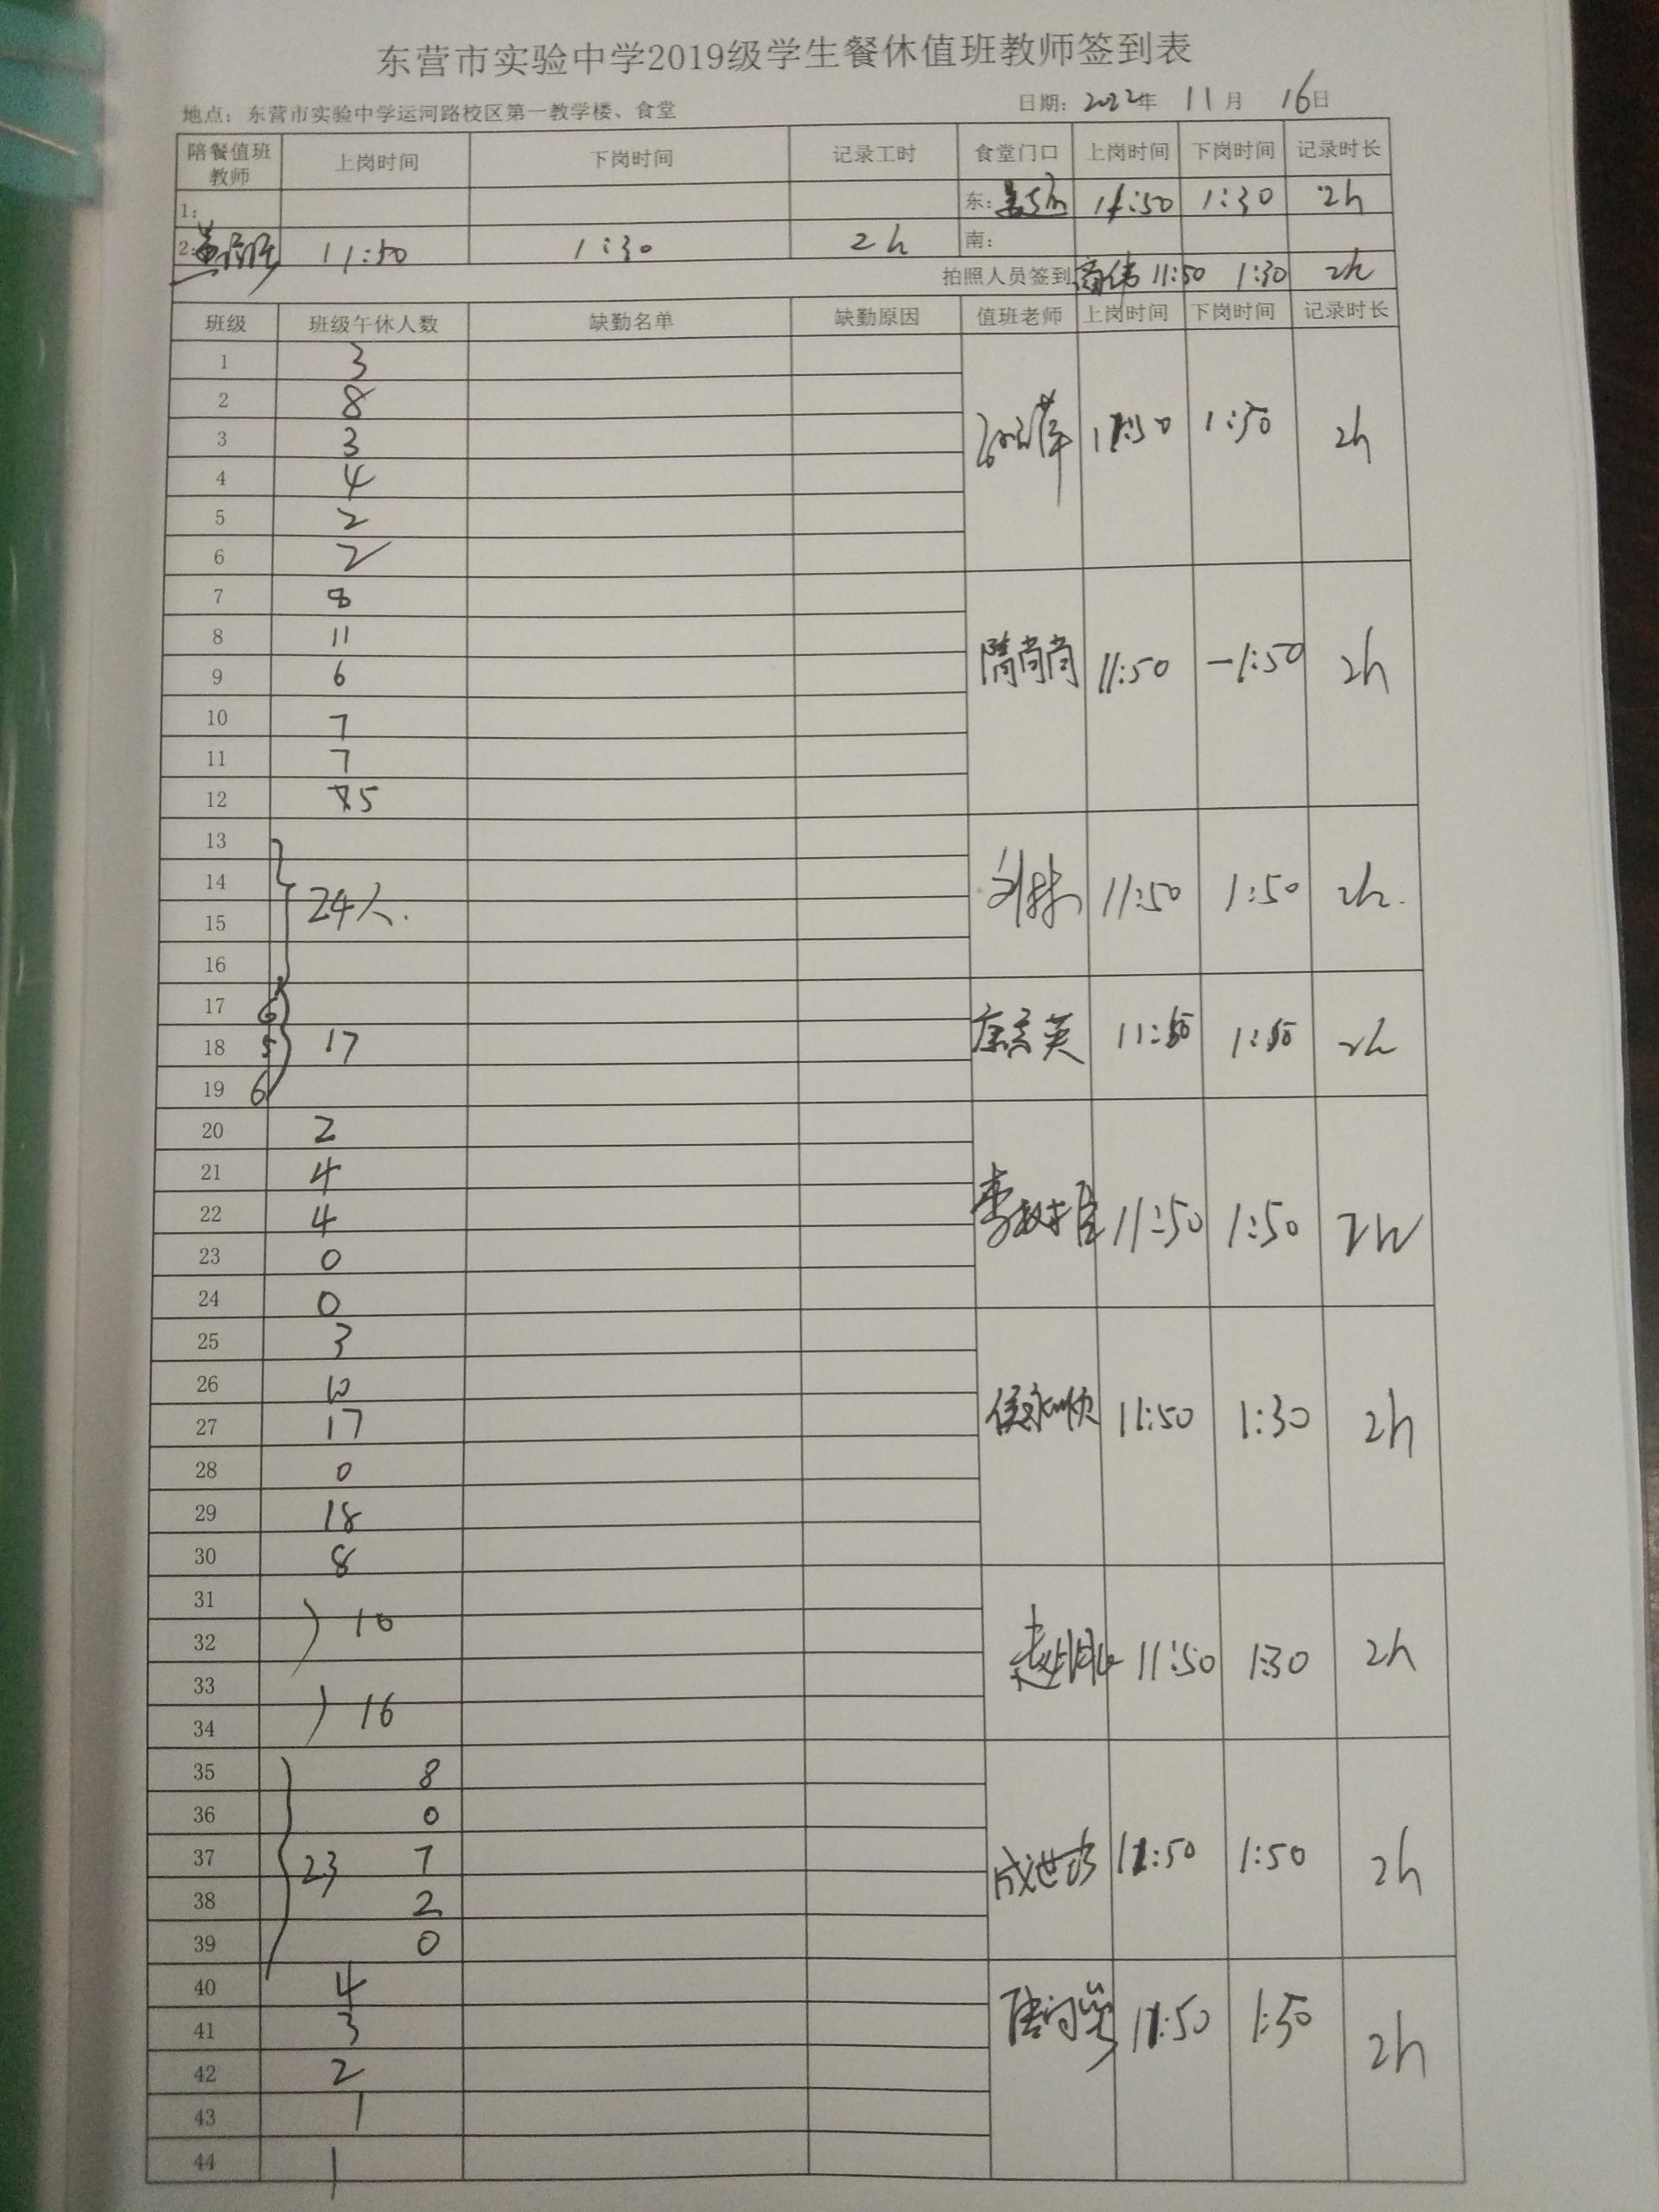 东营市实验中学2019级学生餐休值班教师签到表
地点：东营市实验中学运河路校区第一教学楼、食堂 日期：2022年 11月 16日
陪餐值班教师 上岗时间 下岗时间 记录工时 食堂门口 上岗时间 下岗时间 记录时长
1： 东： 11:50 1:30 2h
2： 11:50 1:30 2h 南：
拍照人员签到 11:50 1:30 2h
班级 班级午休人数 缺勤名单 缺勤原因 值班老师 上岗时间 下岗时间 记录时长
1 3
2 8
3 3 11:50 1:50 2h
4 4
5 2
6 2
7 8
8 11
9 6 隋尚尚 11:50 —1:50 2h
10 7
11 7
12 5
13
14 24人. 刘林 11:50 1:50 2h.
15
16
17 6
18 5 17 11:50 1:50 2h
19 6
20 2
21 4
22 4 11:50 1:50 2h
23 0
24 0
25 3
26 10
27 17 侯永顺 11:50 1:30 2h
28 0
29 18
30 8
31
32 10 11:50 1:30 2h
33
34 16
35 8
36 0
37 23 7 11:50 1:50 2h
38 2
39 0
40 4
41 3 11:50 1:50 2h
42 2
43 1
44 1